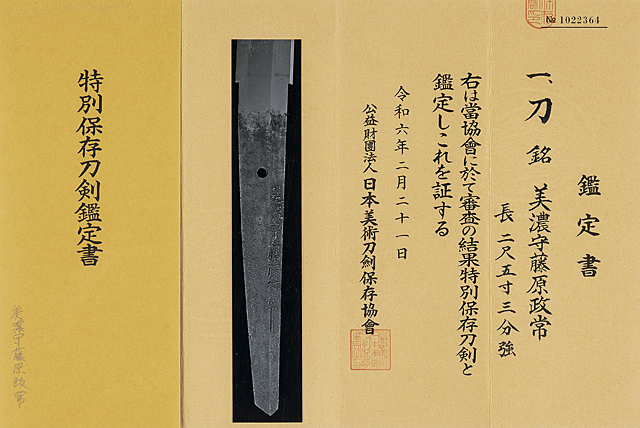 № 1022364
鑑定書
一、刀 銘 美濃守藤原政常
長 二尺五寸三分強
右は當協會に於て審査の結果特別保存刀剣と
鑑定しこれを証する
令和六年二月二十一日
公益財團法人 日本美術刀劍保存協會
特別保存刀剣鑑定書
美濃守藤原政常